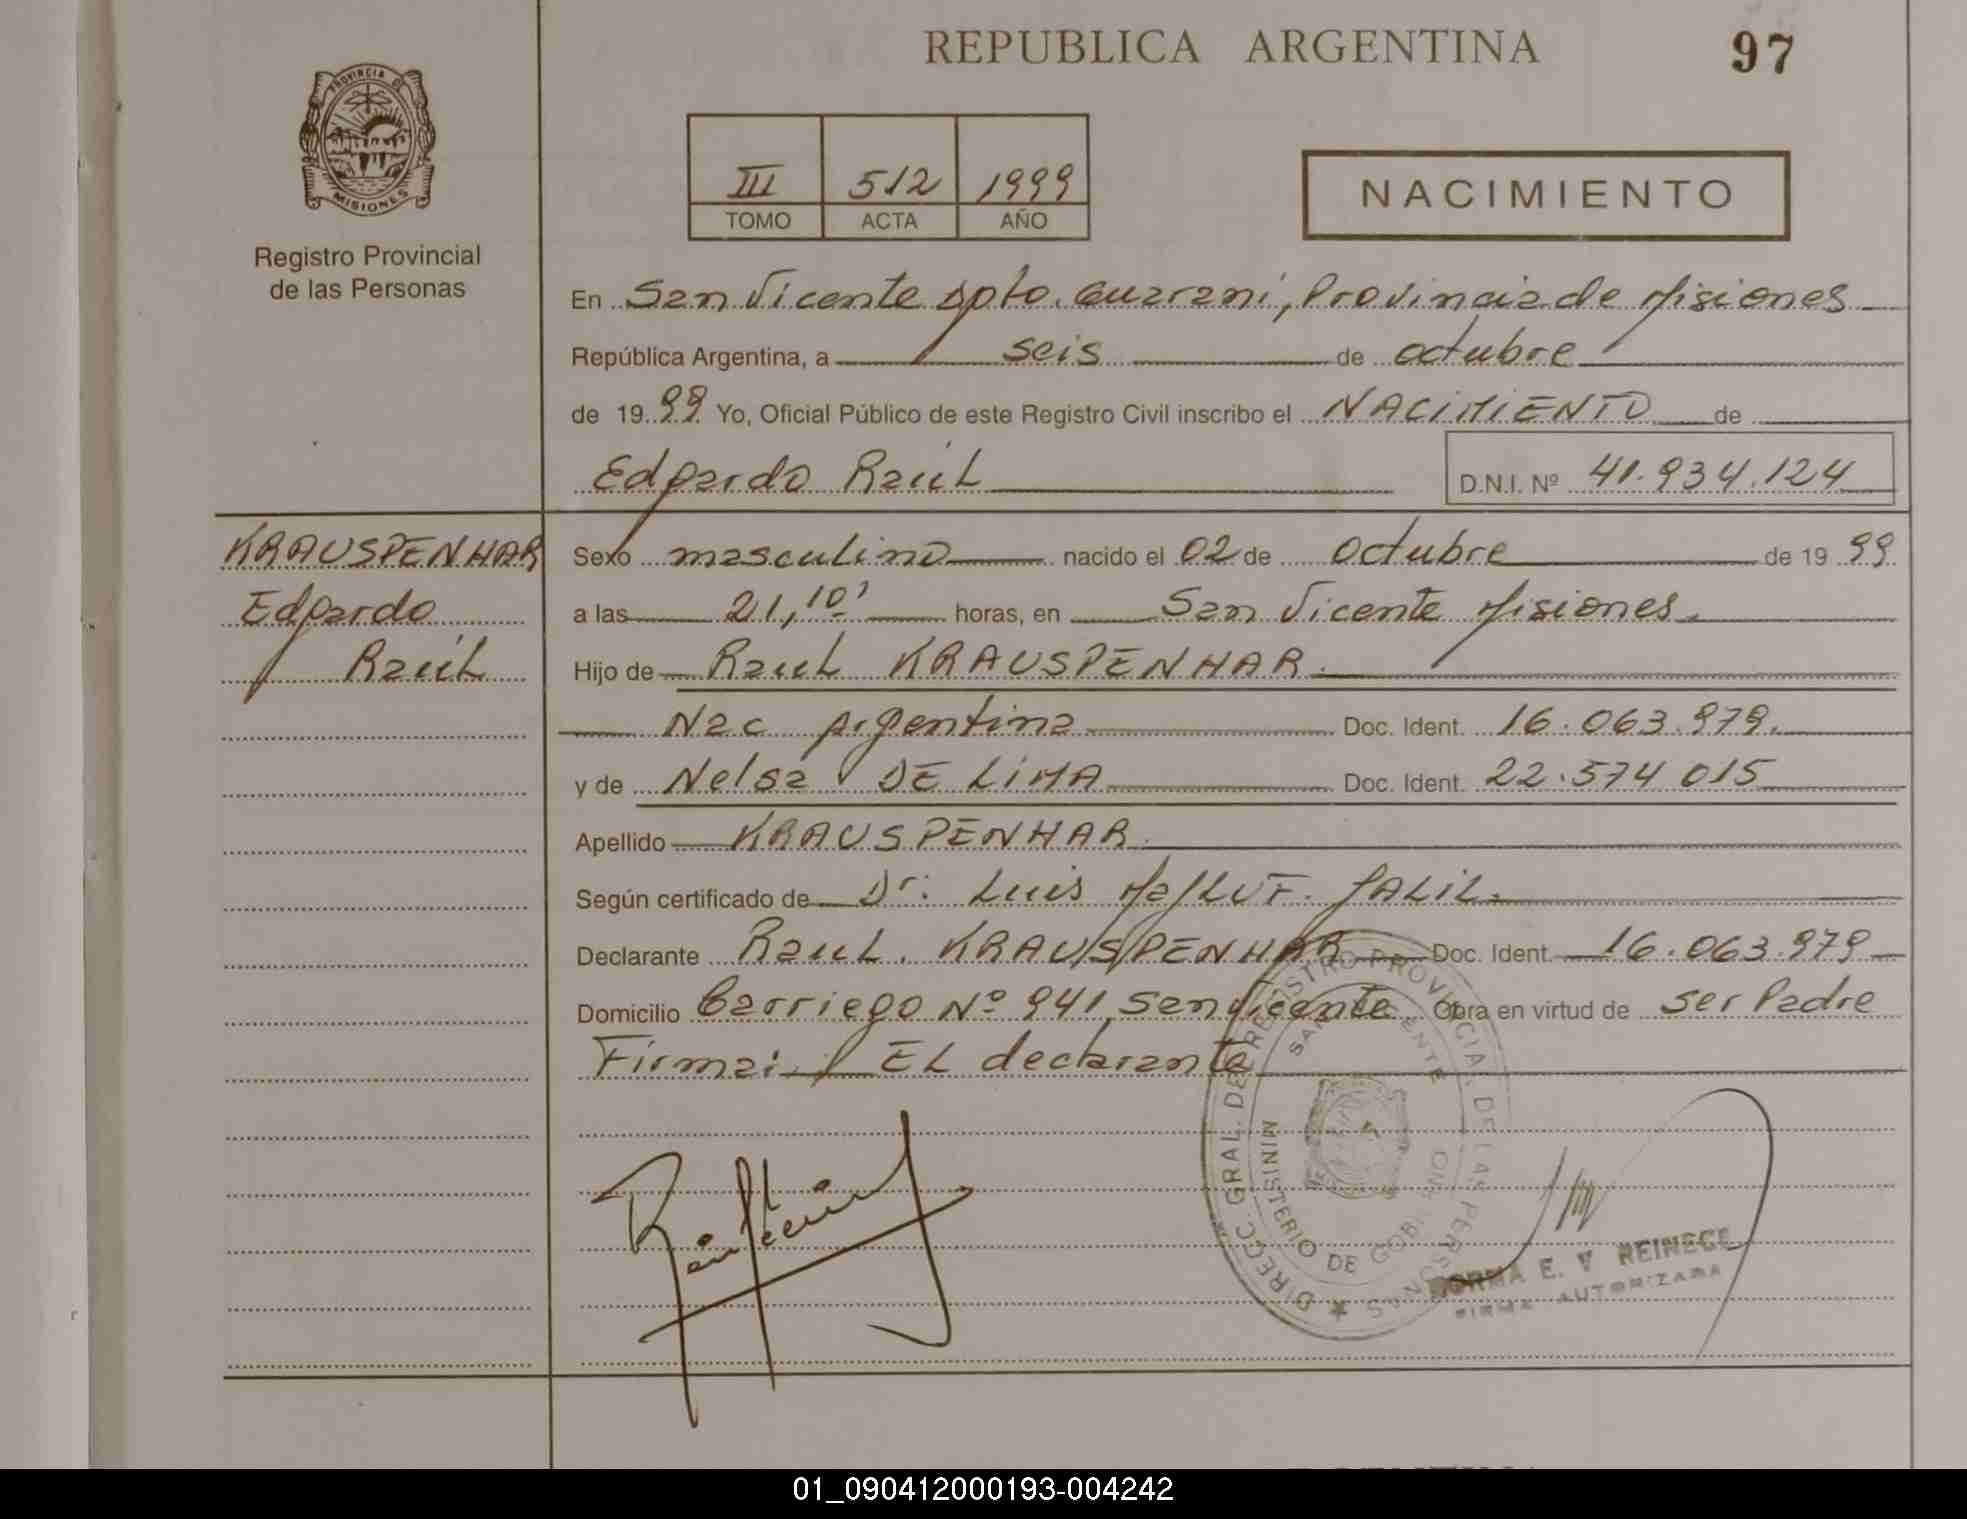 REPUBLICA ARGENTINA 97
PROVINCIA DE MISIONES
Registro Provincial
de las Personas
III 512 1999
TOMO ACTA AÑO
NACIMIENTO
En San Vicente Dpto. Guaraní, Provincia de Misiones
República Argentina, a seis de octubre
de 1999 Yo, Oficial Público de este Registro Civil inscribo el NACIMIENTO de
Edgardo Raúl D.N.I. Nº 41.934.124
KRAUSPENHAR
Edgardo
Raúl
Sexo masculino nacido el 02 de octubre de 1999
a las 21,10' horas, en San Vicente Misiones.
Hijo de Raul KRAUSPENHAR.
Nac argentina Doc. Ident. 16.063.979.
y de Nelsa DE LIMA Doc. Ident. 22.574 015
Apellido KRAUSPENHAR.
Según certificado de Dr. Luis JALIL.
Declarante Raul. KRAUSPENHAR Doc. Ident. 16.063.979
Domicilio Carriego Nº 941 San Vicente Obra en virtud de ser Padre
Firma: EL declarante
DIRECC. GRAL. DE REGISTRO PROVINCIAL DE LAS PERSONAS
MINISTERIO DE GOB.
SAN VICENTE
NORMA E. V REINECE
FIRMA AUTORIZADA
01_090412000193-004242